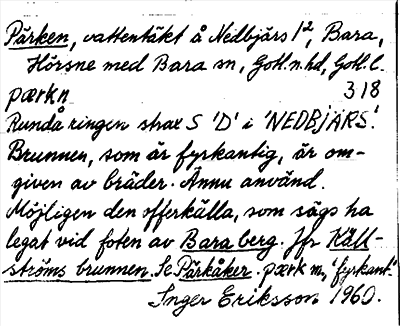 Pärken, vattentäkt å Nedbjärs 1², Bara,
Hörsne med Bara sn, Gotl.n.hd, Gotl.l.
pærkn 318
Rundå ringen strax S 'D' i 'NEDBJÄRS'.
Brunnen, som är fyrkantig, är om-
given av bräder. Ännu använd.
Möjligen den offerkälla, som sägs ha
legat vid foten av Bara berg. Jfr Käll-
ströms brunnen. Se Pärkåker. pærk m, 'fyrkant'.
Inger Eriksson 1960.